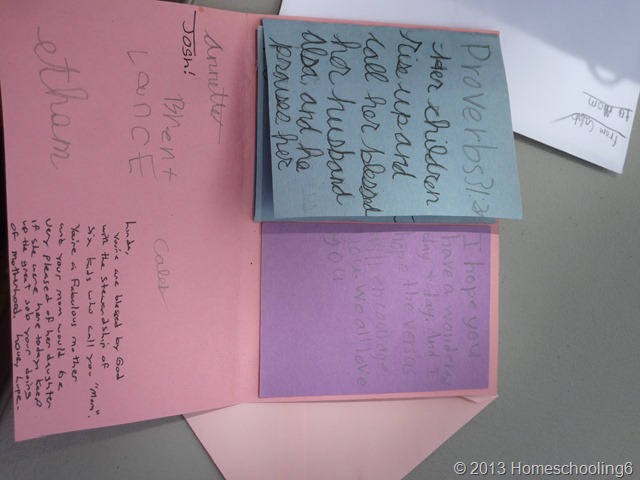 Proverbs
Her children
rise up and
call her blessed
her husband
also and he
praises her
I hope you
have a
day today. And I
hope the verses
will encourage
you we all love
you
Annette
Josh!
Brent
Lance
ethan
Caleb
You're are blessed by God
with the stewardship of
six kids who call you "mom".
You're a fabulous mother
and your mom would be
very pleased of her daughter
if she were here today. Keep
up the great job your doing
of motherhood. Love, hope-
from Caleb
to Mom
© 2013 Homeschooling6